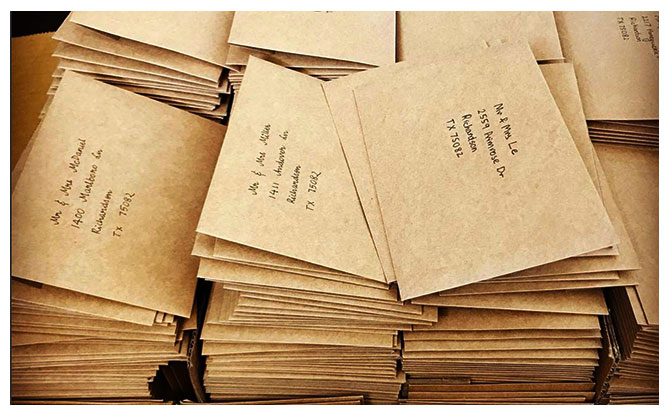 Mr & Mrs McDaniel
1400 Marlboro Ln
Richardson
TX 75082
Mr & Mrs Miller
1411 Andover Ln
Richardson
TX 75082
Mr & Mrs Le
2559 Primrose Dr
Richardson
TX 75082
2217
Richardson
TX 75082